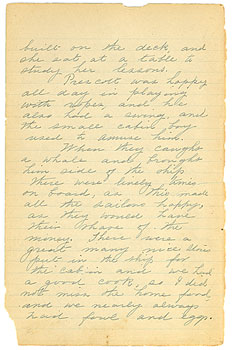 built on the deck, and
she sat, at a table to
study her lessons.
Prescott was happy
all day in playing
with ropes, and he
also had a swing, and
the small cabin boy
used to amuse him.
When they caught
a whale and brought
him side of the ship
There were lively times
on board, as this made
all the sailors happy,
as they would have
their share of the
money. There were a
great many nice things
put in the ship for
the cabin and we had
a good cook, so I did
not miss the home food
and we nearly always
had fowl and eggs.